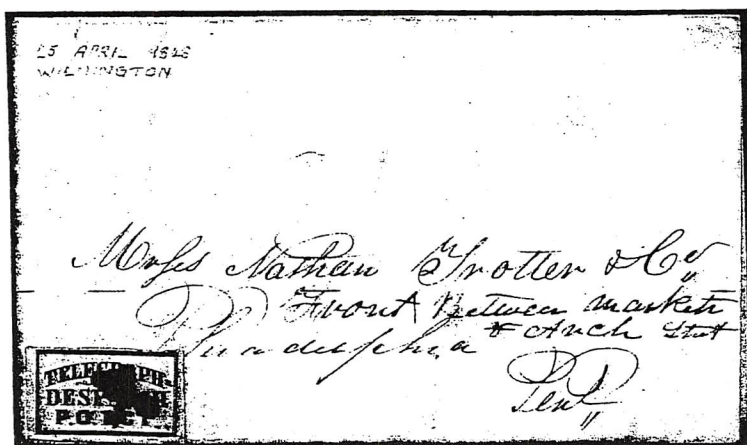 25 APRIL
WILMINGTON
Messs Nathan Trotter & Co
Front Between market
& Arch Street
Philadelphia
Pen
TELEGRAPH
P.O.